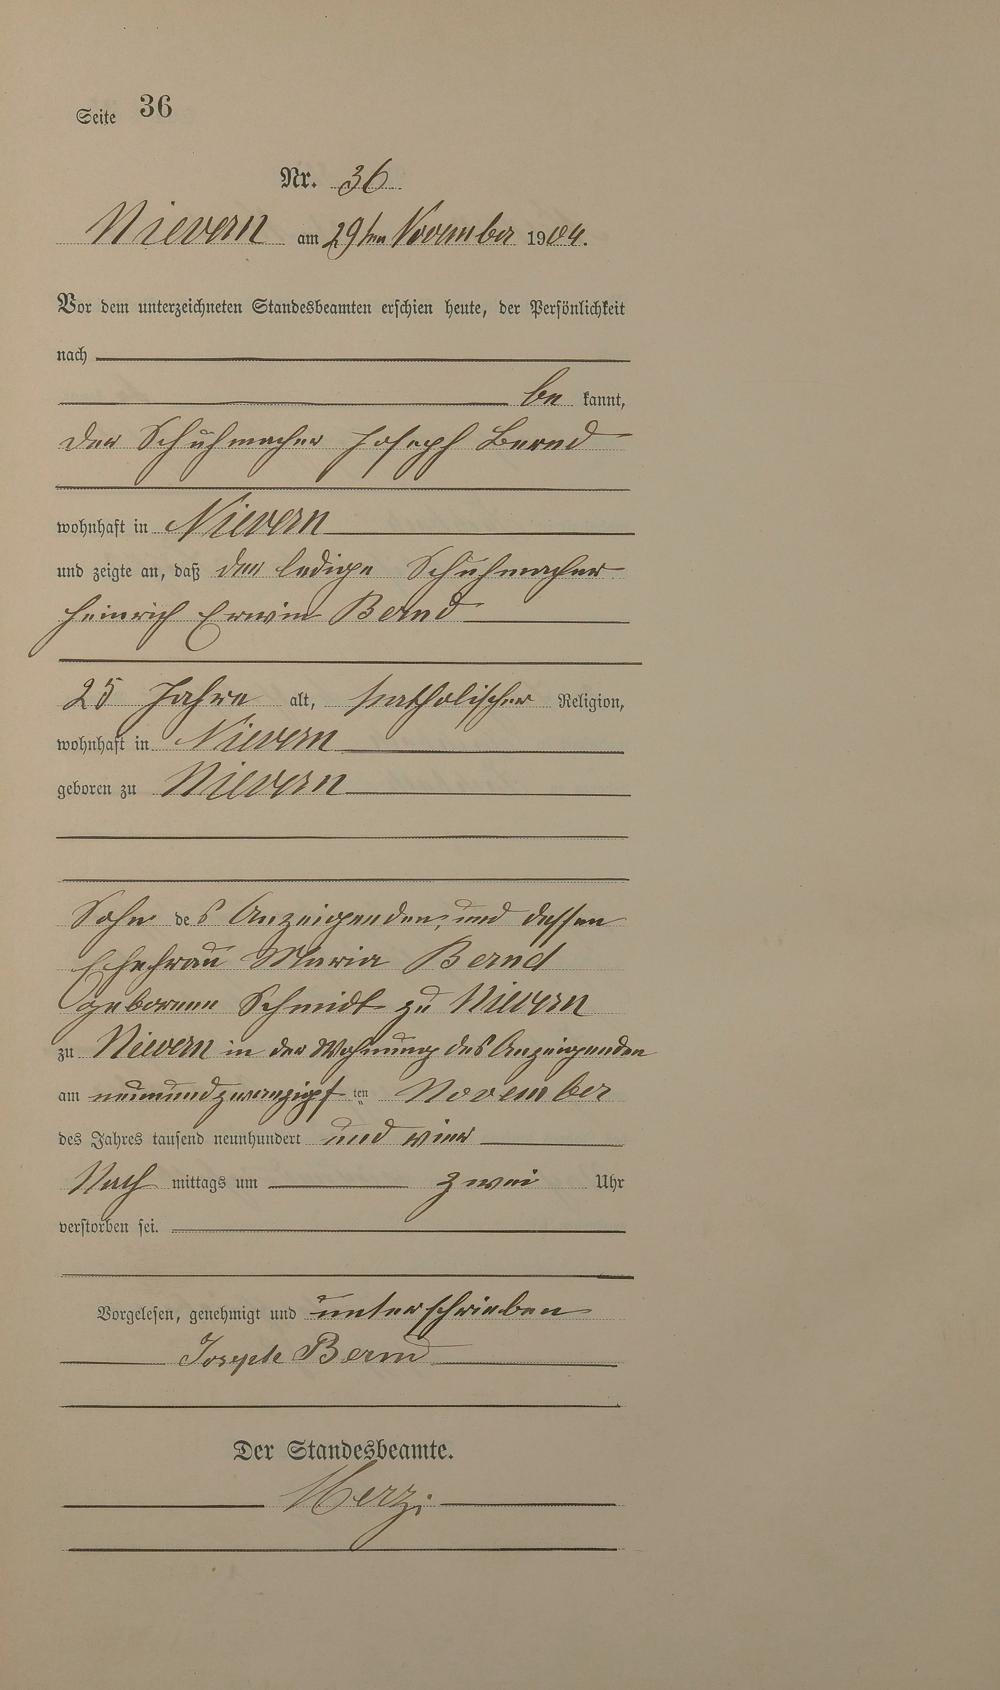 Seite 36
Nr. 36
Nievern am 29ten November 1904.
Vor dem unterzeichneten Standesbeamten erschien heute, der Persönlichkeit
nach
be kannt,
der Schuhmacher Joseph Bernd
wohnhaft in Nievern
und zeigte an, daß der ledige Schuhmacher
Heinrich Erwin Bernd
25 Jahre alt, katholischer Religion,
wohnhaft in Nievern
geboren zu Nievern
Sohn des Anzeigenden, und dessen
Ehefrau Maria Bernd
geborene Schmidt zu Nievern
zu Nievern in der Wohnung des Anzeigenden
am neunundzwanzigsten November
des Jahres tausend neunhundert und vier
Nach mittags um zwei Uhr
verstorben sei.
Vorgelesen, genehmigt und unterschrieben
Joseph Bernd
Der Standesbeamte.